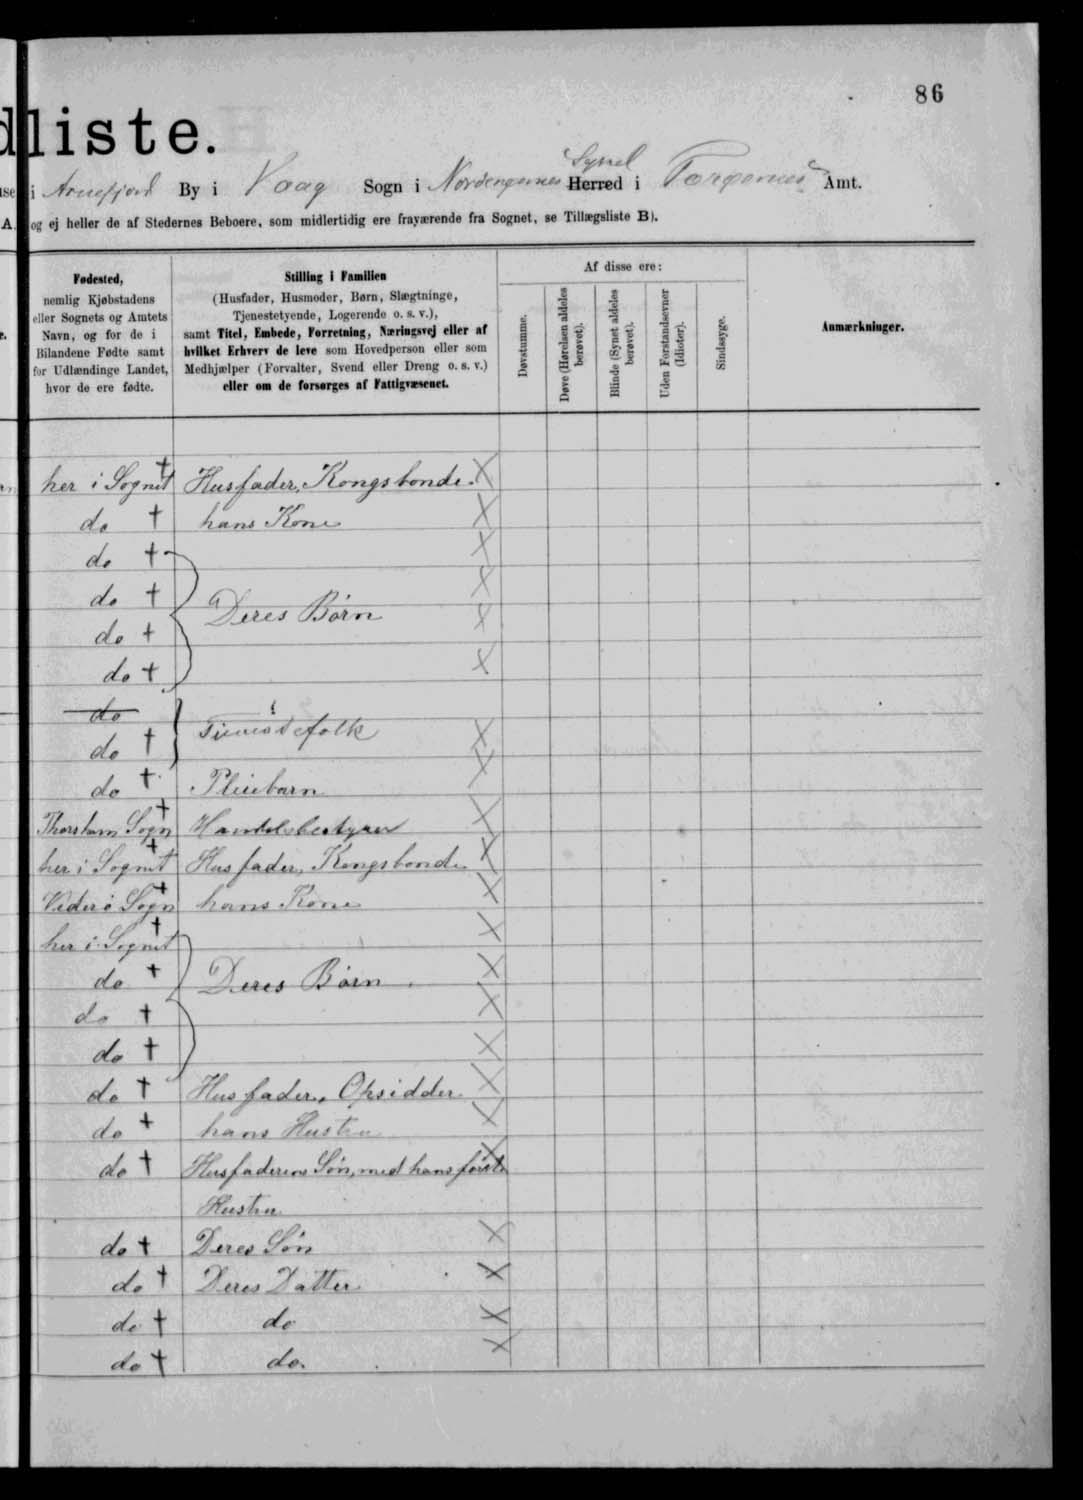 86
dliste.
i Arnefjord By i Vaag Sogn i Norderøernes Herred Syssel i Færøernes Amt.
A. og ej heller de af Stedernes Beboere, som midlertidig ere fraværende fra Sognet, se Tillægsliste B).
Fødested,
nemlig Kjøbstadens
eller Sognets og Amtets
Navn, og for de i
Bilandene Fødte samt
for Udlændinge Landet,
hvor de ere fødte.
Stilling i Familien
(Husfader, Husmoder, Børn, Slægtninge,
Tjenestetyende, Logerende o. s. v.),
samt Titel, Embede, Forretning, Næringsvej eller af
hvilket Erhverv de leve som Hovedperson eller som
Medhjælper (Forvalter, Svend eller Dreng o. s. v.)
eller om de forsørges af Fattigvæsenet.
Af disse ere:
Døvstumme.
Døve (Hørelsen aldeles
berøvet).
Blinde (Synet aldeles
berøvet).
Uden Forstandsevner
(Idioter).
Sindssyge.
Anmærkninger.
her i Sognet † Husfader, Kongsbonde. X
do † hans Kone X
do † X
do † X
Deres Børn
do † X
do † X
do
Tienestefolk
do † X
do † Pleiebarn X
Thorshavn Sogn † Handelsbestyrer X
her i Sognet † Husfader, Kongsbonde X
Viderø Sogn † hans Kone X
her i Sognet † X
do † Deres Børn X
do † X
do † X
do † Husfader, Opsidder X
do † hans Hustru X
do † Husfaderens Søn, med hans første X
Hustru
do † Deres Søn X
do † Deres Datter X
do † do X
do † do. X